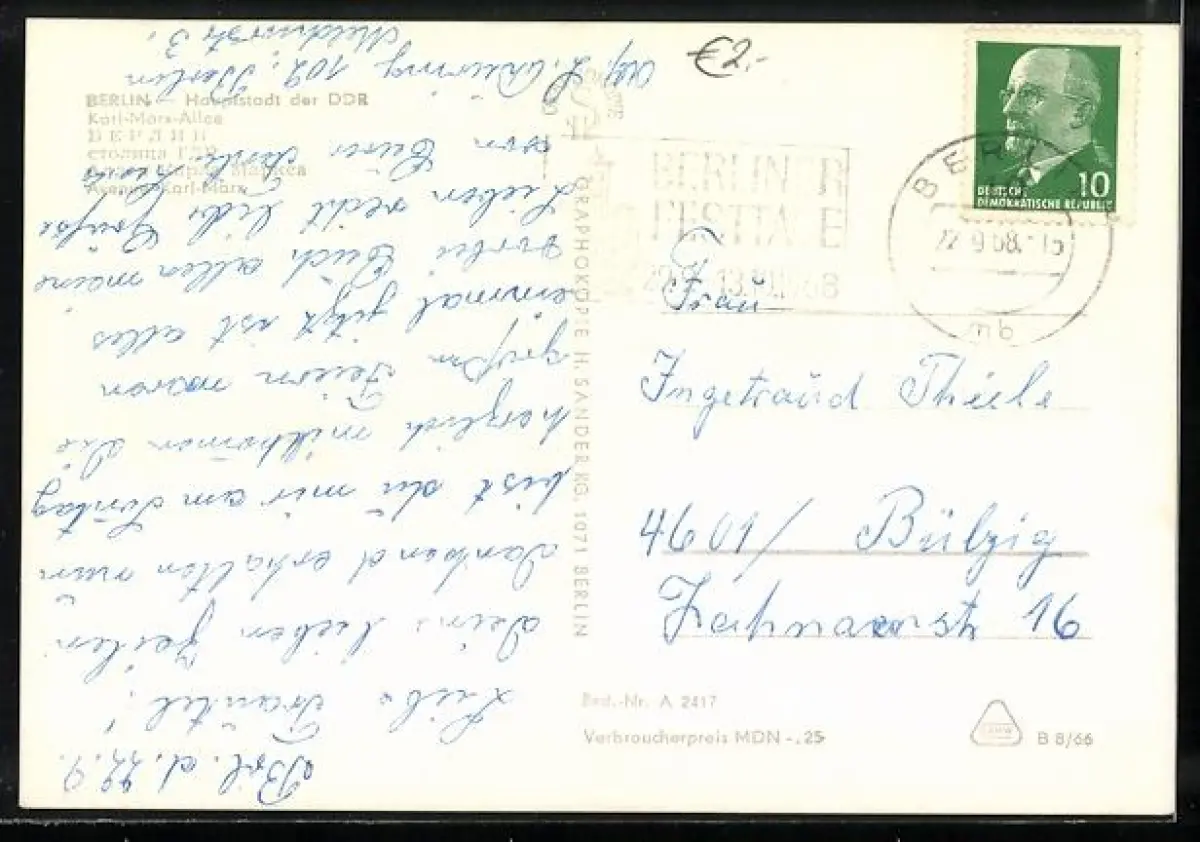 €2,-
BERLIN — Hauptstadt der DDR
Karl-Marx-Allee
БЕРЛИН
столица ГДР
Аллея Карла Маркса
Avenue Karl-Marx
Bln. d. 22.9.
Liebe Traudel!
Deine lieben Zeilen
dankend erhalten nun
bist du mir am Sontag
herzlich willkomen die
großen Feiern waren
einmal jetzt ist alles
vorbei Euch allen meine
Lieben recht liebe Grüße
von Eurer Tante
102 Berlin
GRAPHOKOPIE H. SANDER KG, 1071 BERLIN
BERLINER
FESTTAGE
29.9.-13.10.1968
BERLIN
22.9.68.-15
mb
DEUTSCHE
DEMOKRATISCHE REPUBLIK
10
Frau
Ingetraud Thiele
4601/ Bülzig
Zahnaerstr 16
Best.-Nr. A 2417
Verbraucherpreis MDN -,25
B 8/66